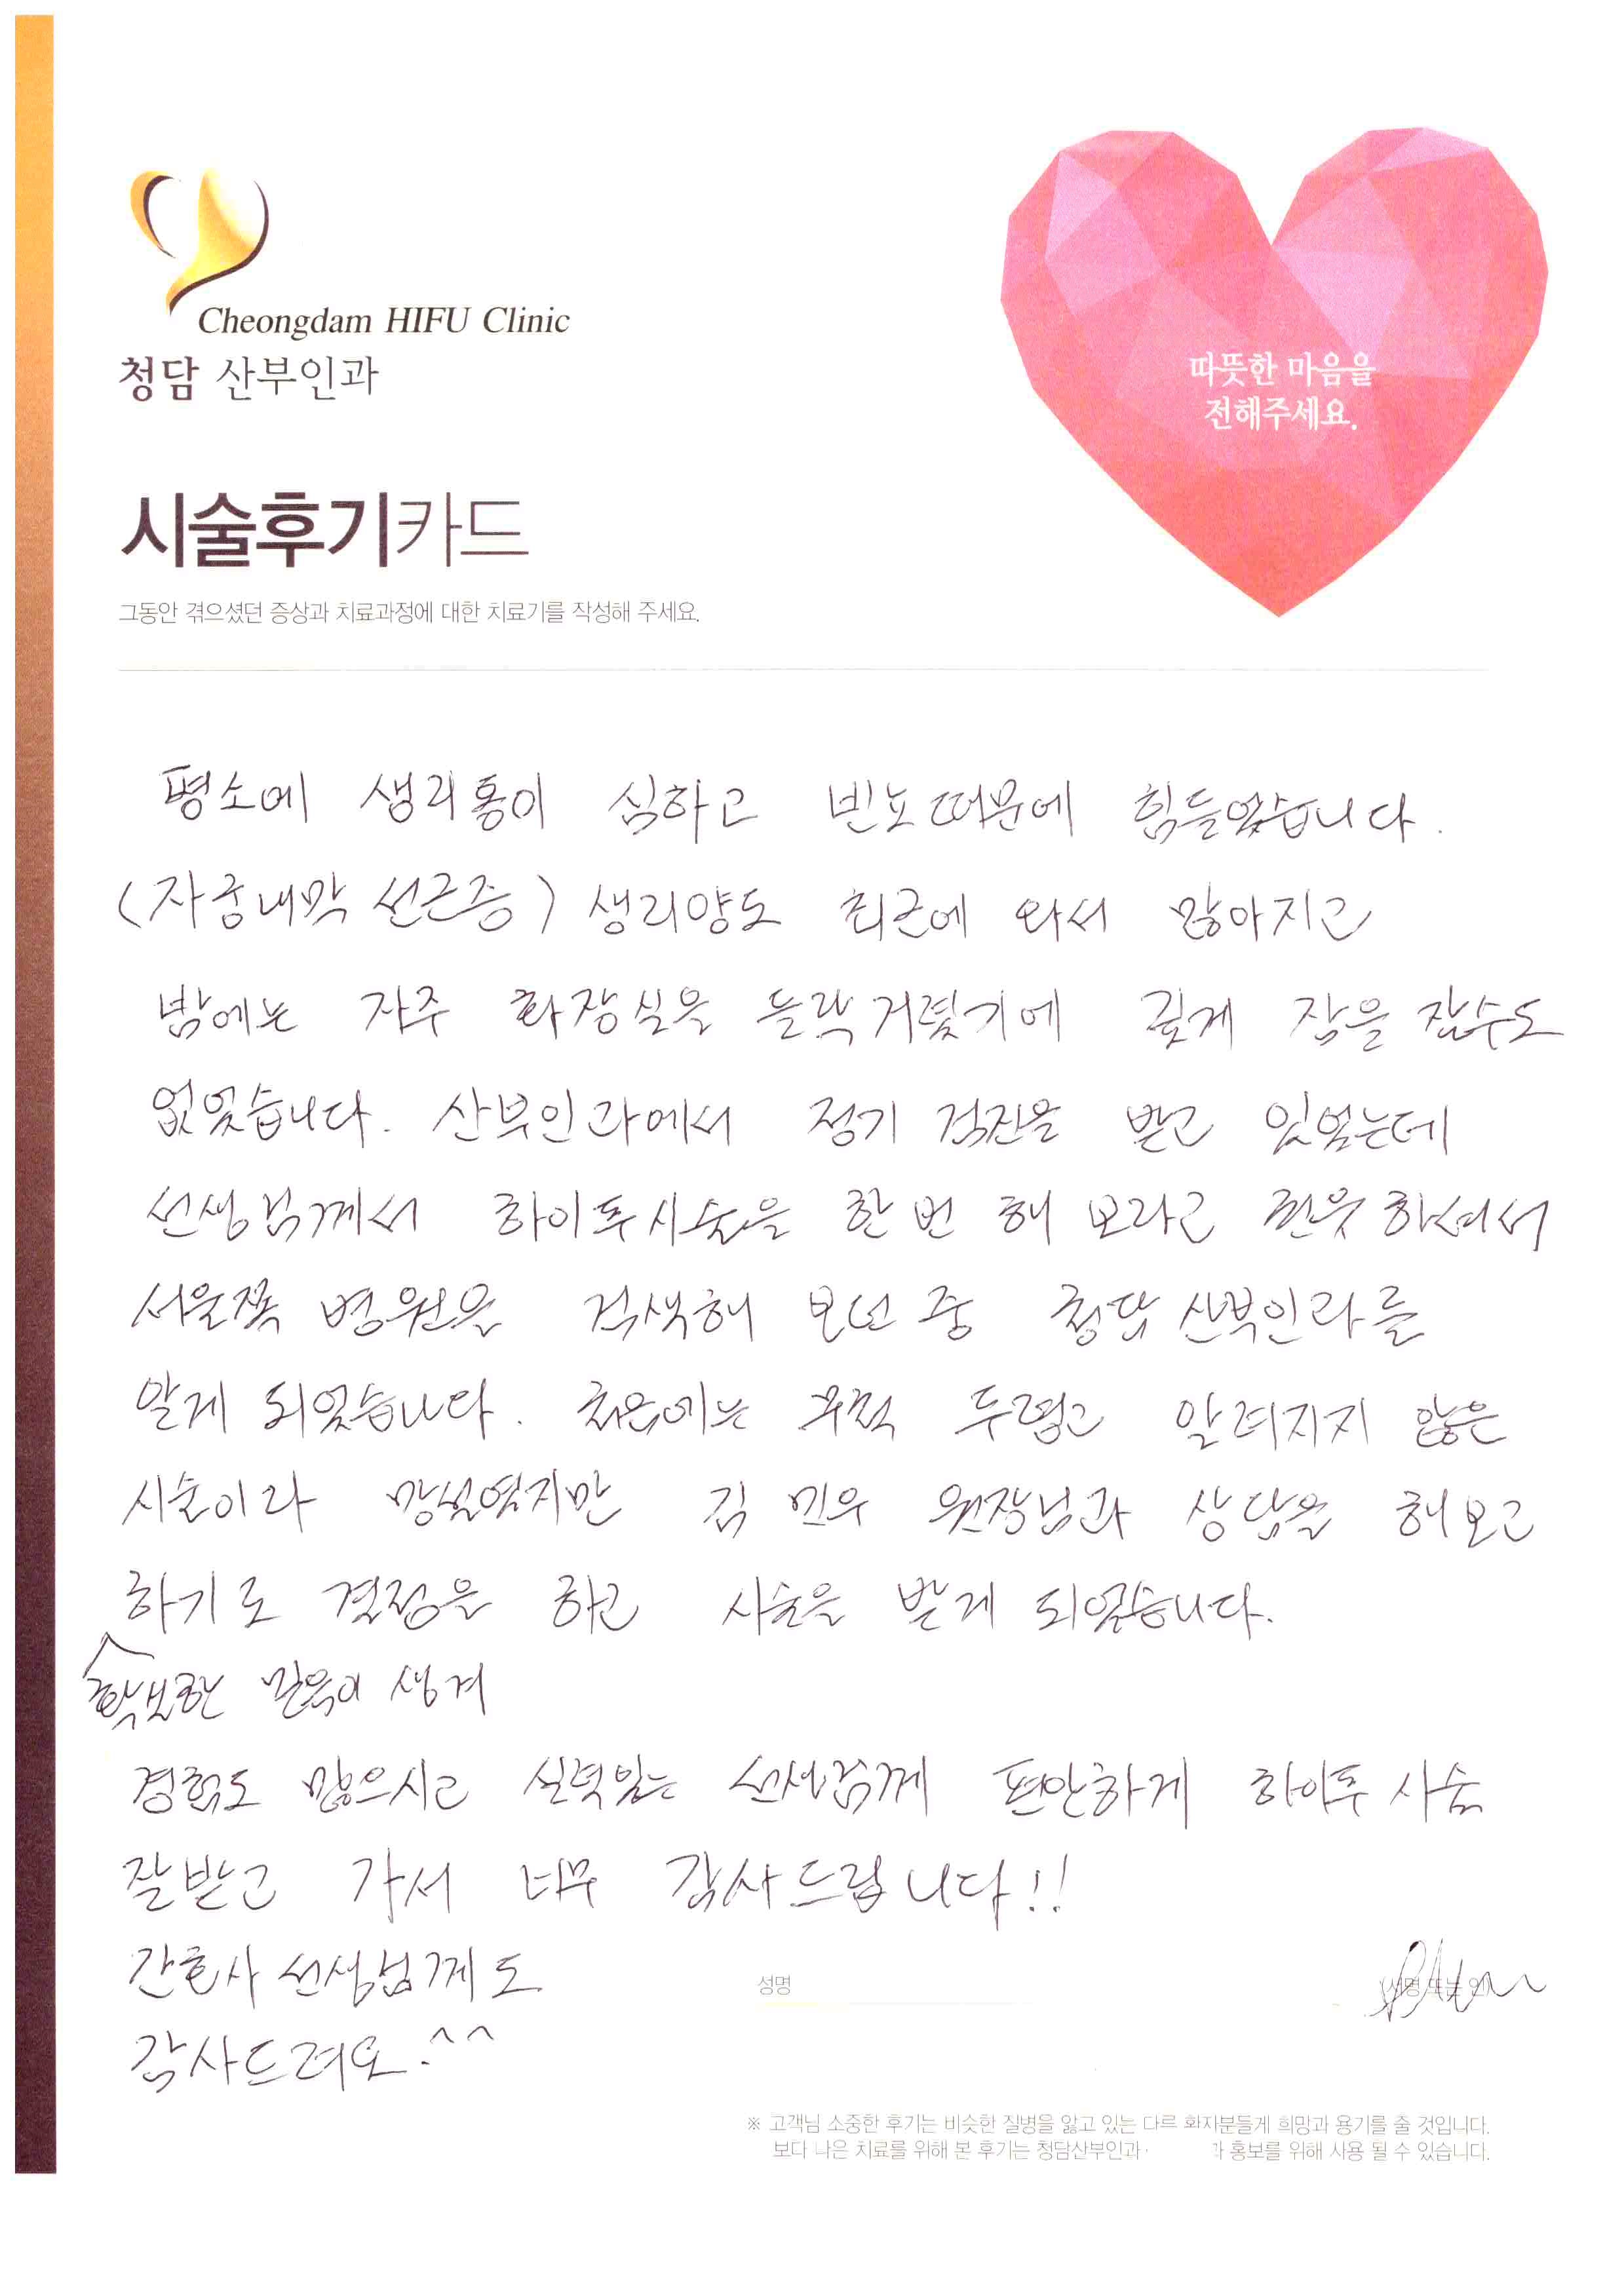 Cheongdam HIFU Clinic
청담 산부인과
따뜻한 마음을
전해주세요.
시술후기카드
그동안 겪으셨던 증상과 치료과정에 대한 치료기를 작성해 주세요.
평소에 생리통이 심하고 빈뇨때문에 힘들었습니다.
(자궁내막 선근증) 생리양도 최근에 와서 많아지고
밤에는 자주 화장실을 들락거렸기에 깊게 잠을 잘수도
없었습니다. 산부인과에서 정기 검진을 받고 있었는데
선생님께서 하이푸시술을 한번 해 보라고 하셔서
서울쪽 병원을 검색해 보던 중 청담 산부인과를
알게 되었습니다. 처음에는 무척 두렵고 알려지지 않은
시술이라 망설였지만 김 민우 원장님과 상담을 해보고
하기로 결정을 하고 시술을 받게 되었습니다.
확실한 믿음이 생겨
경험도 많으시고 실력있는 선생님께 편안하게 하이푸 시술
잘받고 가서 너무 감사드립니다!!
간호사 선생님께도
감사드려요.^^
성명
(서명 또는 인)
※ 고객님 소중한 후기는 비슷한 질병을 앓고 있는 다른 환자분들게 희망과 용기를 줄 것입니다.
보다 나은 치료를 위해 본 후기는 청담산부인과 홍보를 위해 사용 될 수 있습니다.